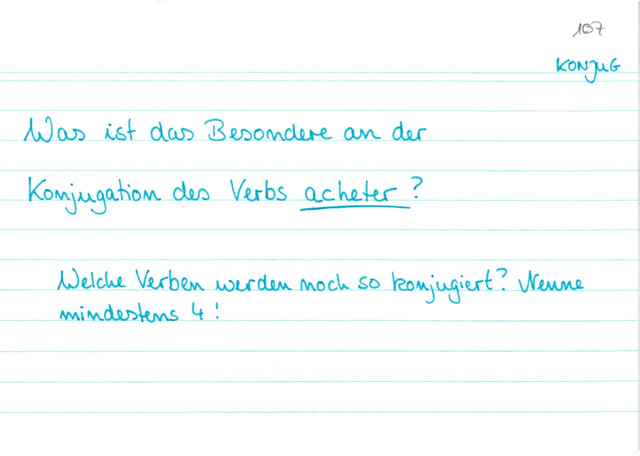 107
KONJUG
Was ist das Besondere an der
Konjugation des Verbs acheter?
Welche Verben werden noch so konjugiert? Nenne
mindestens 4!